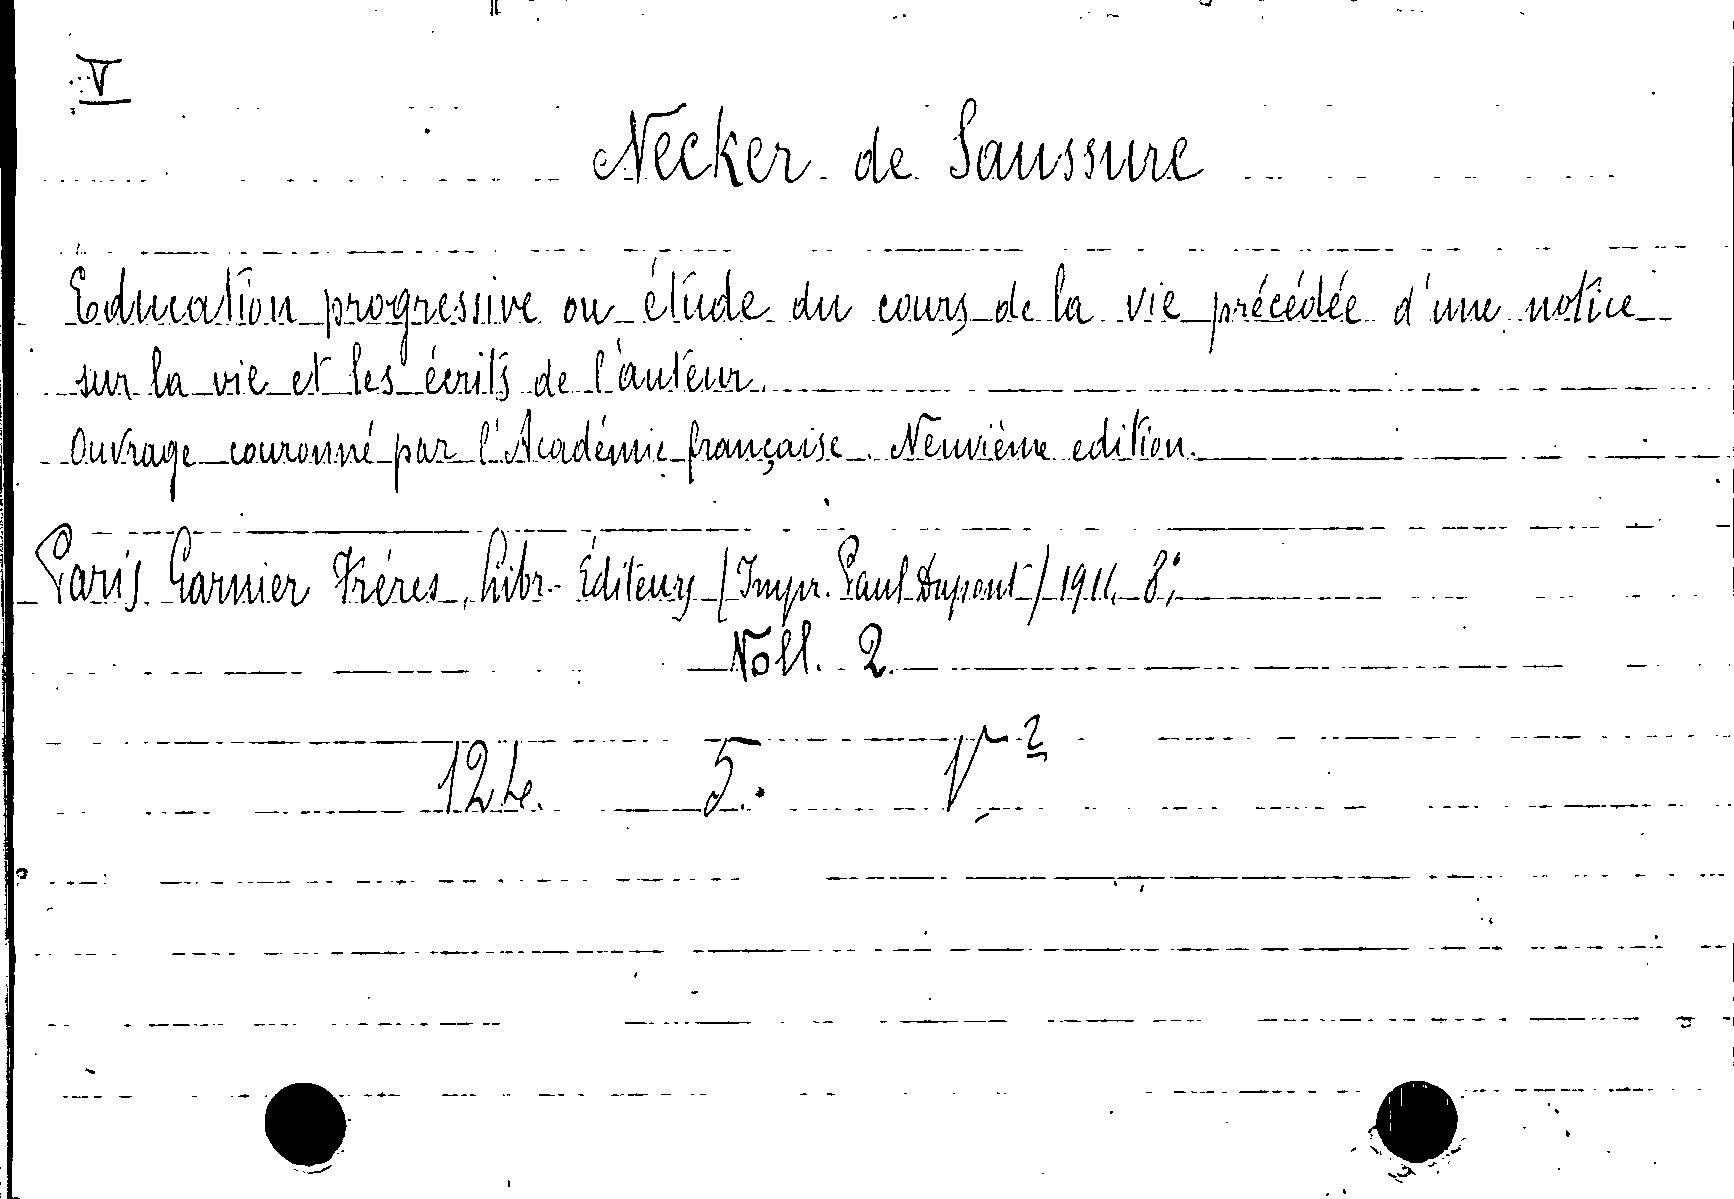 V
Necker de Saussure
Education progressive ou étude du cours de la vie précédée d'une notice
sur la vie et les écrits de l'auteur.
Ouvrage couronné par l'Académie française. Neuvième edition.
Paris Garnier Fréres, Libr.-Éditeurs (Impr. Paul Dupont) 1911. 8°
Voll. 2.
124. 5. V 2